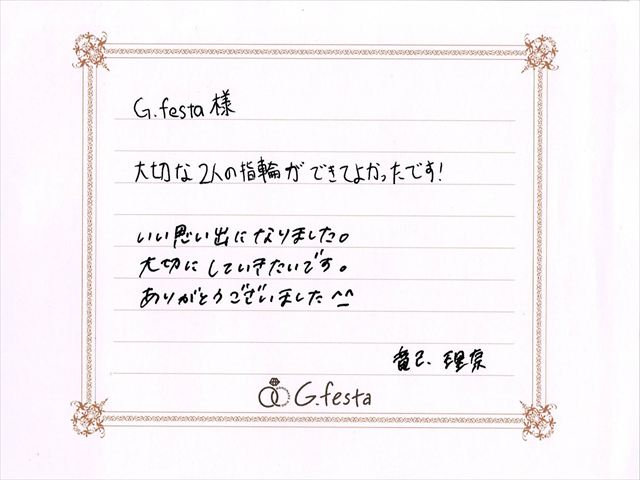 G.festa 様
大切な2人の指輪ができてよかったです!
いい思い出になりました。
大切にしていきたいです。
ありがとうございました^_^
理奈
G.festa